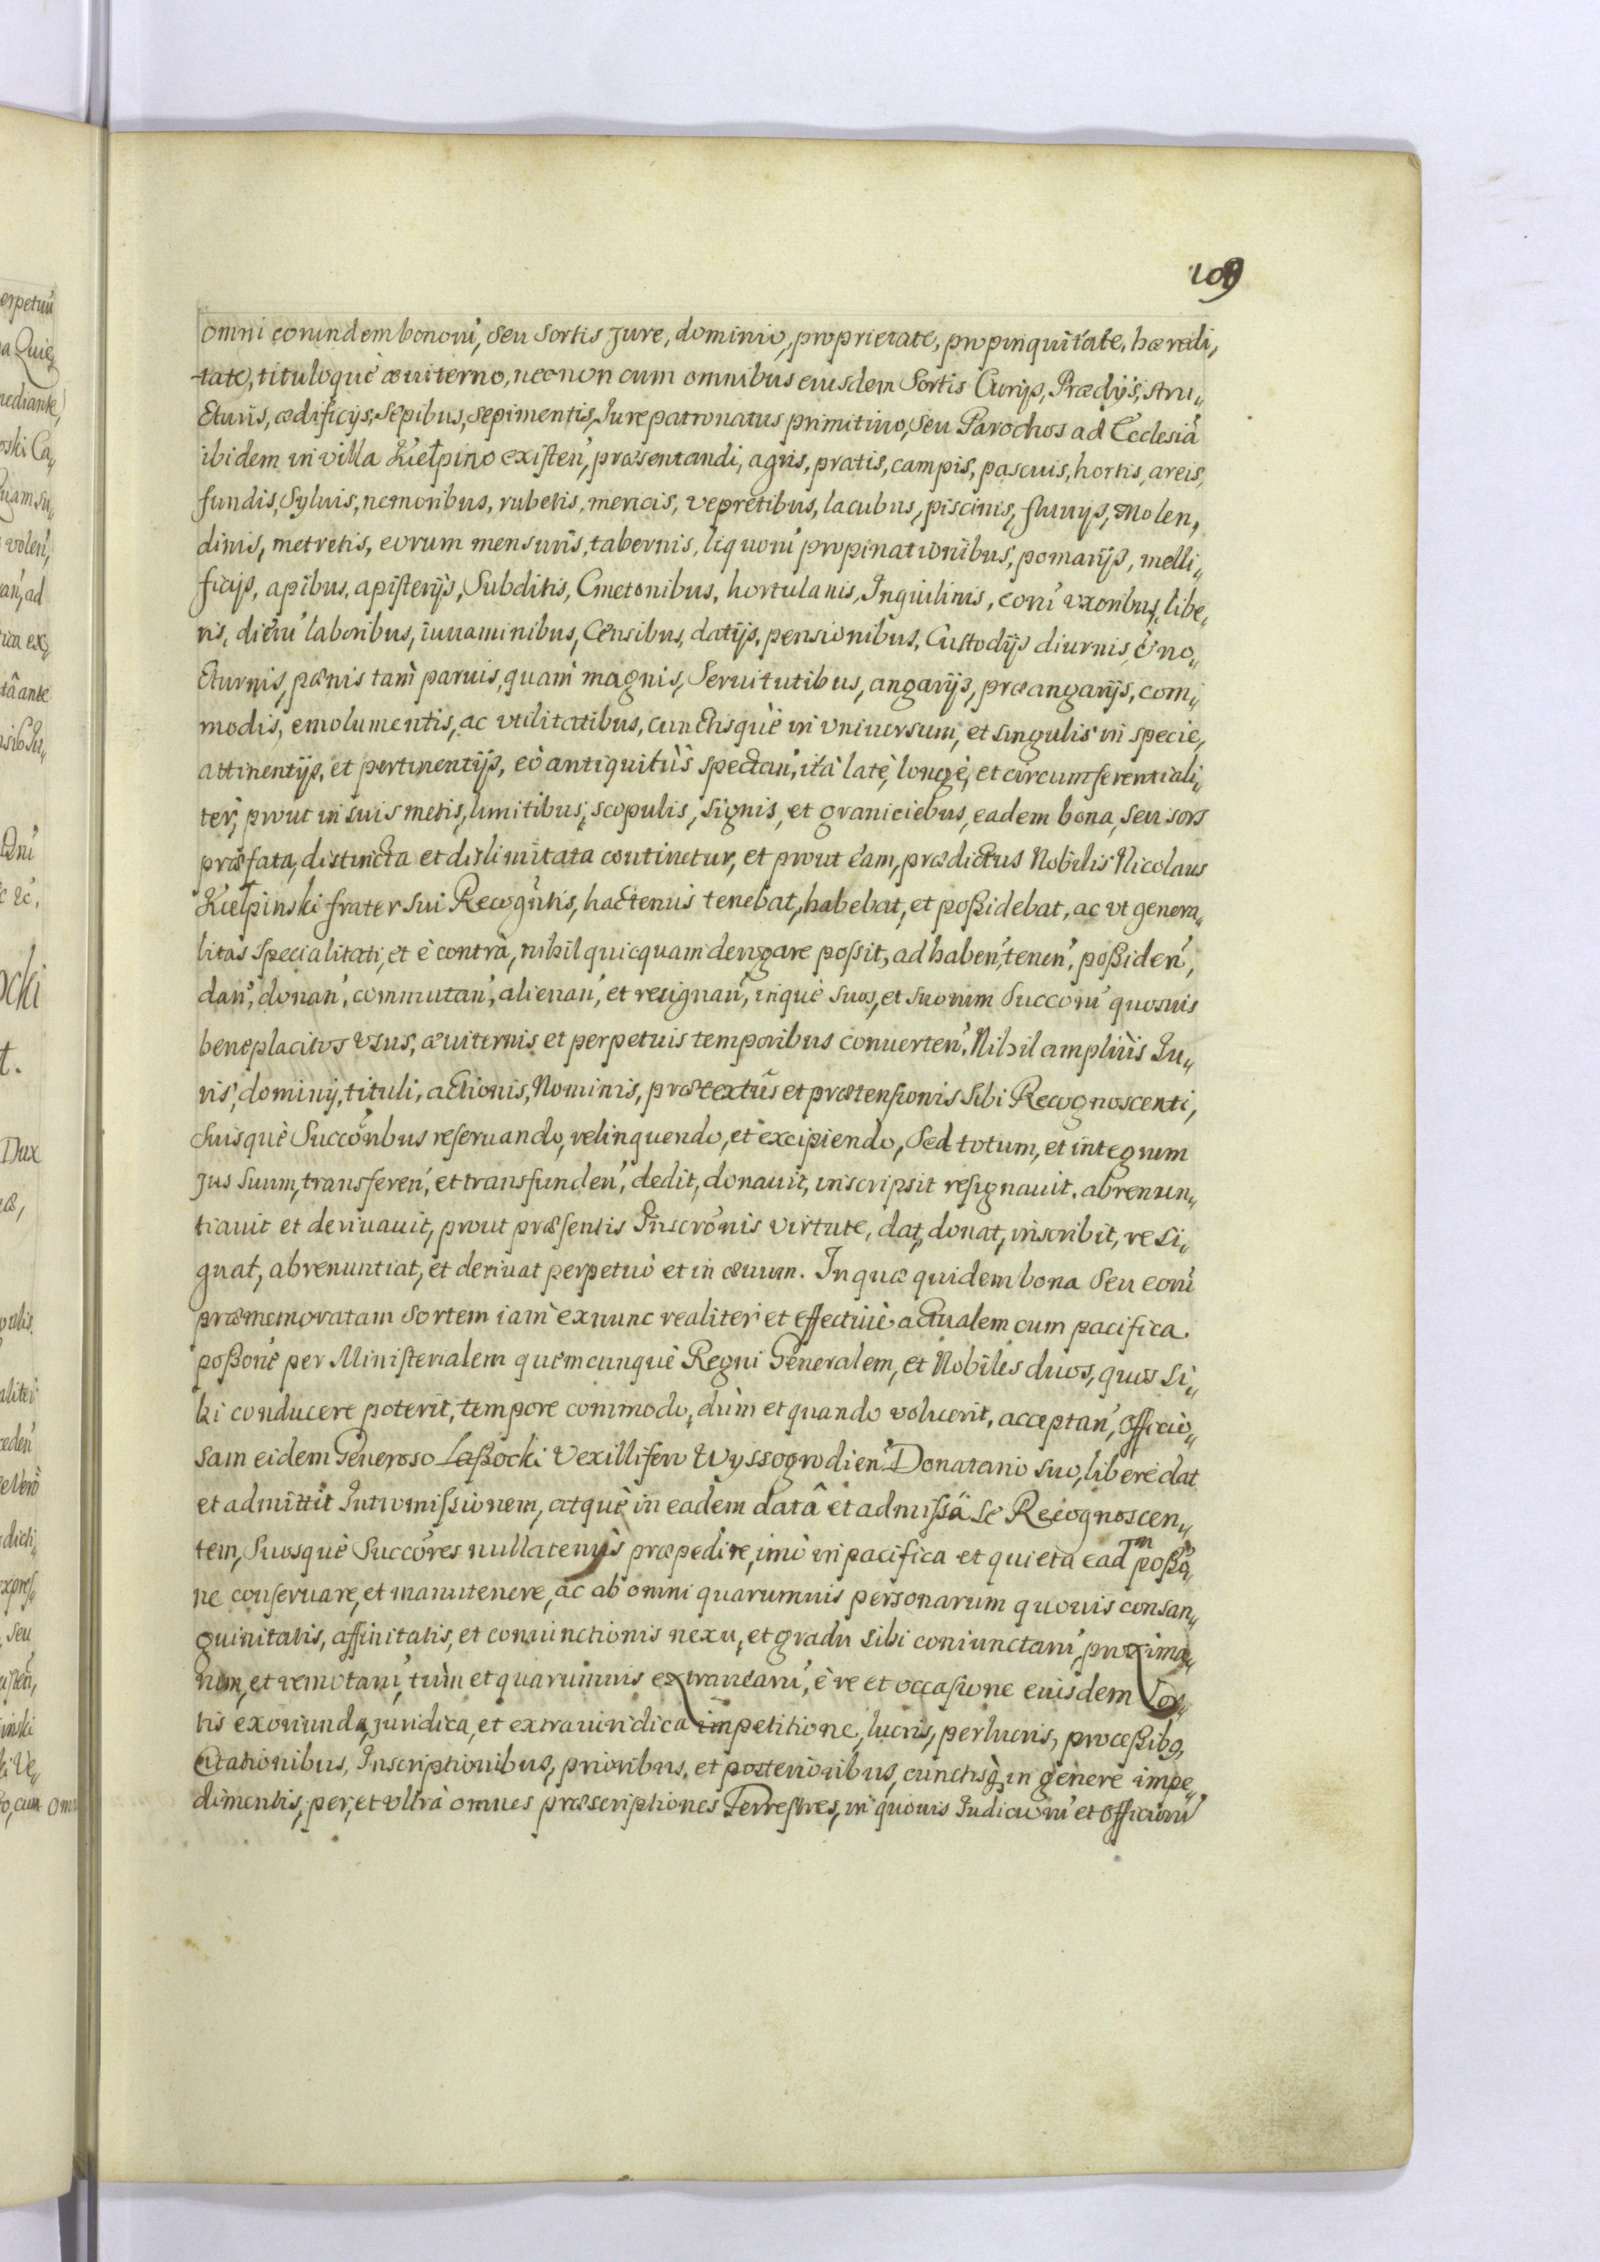 109
omni eorundem bonorũ, seu sortis jure, dominio, proprietate, propinquitate, hæredi„
tate, tituloquè æuiterno, necnon cum omnibus eiusdem Sortis Curijs, Prædijs, stru„
cturis, ædificijs, Sepibus, sepimentis, Jure patronatus primitiuo, seu Parochos ad Ecclesiã
ibidem in villa Kiełpino existeñ, præsentandi, agris, pratis, campis, pascuis, hortis, areis,
fundis, Syluis, nemoribus, rubetis, mericis, vepretibus, lacubus, piscinis, fluuijs, Molen„
dinis, metretis, eorum mensuris, tabernis, liquorũ propinationibus, pomarijs, melli„
ficijs, apibus, apisterijs, Subditis, Cmetonibus, hortulanis, Inquilinis, eorũ vxoribus, libe„
ris, dierũ laboribus, iuuaminibus, Censibus, datijs, pensionibus, Custodijs diurnis, & no„
cturnis, pœnis tam paruis, quam magnis, Seruitutibus, angarijs, præangarijs, com„
modis, emolumentis, ac vtilitatibus, cunctisquè in vniuersum, et singulis in specie,
attinentijs, et pertinentijs, eò antiquitùs spectañ, ità latè, longè, et circumferentiali„
ter, prout in suis metis, limitibus, scopulis, signis, et graniciebus, eadem bona, seu sors
præfata, distincta et dislimitata continetur, et prout eam, prædictus Nobilis Nicolaus
Kiełpinski frater sui Recogñtis, hactenus tenebat, habebat, et poßidebat, ac vt genera„
litas specialitati, et è contrà, nihil quicquam derogare possit, ad habeñ, teneñ, poßideñ,
dañ, donañ, commutañ, alienañ, et resignañ, inquè suos, et suorum Succorũ quosuis
beneplacitos vsus, æuiternis et perpetuis temporibus conuerteñ. Nihil ampliùs Ju„
ris, dominij, tituli, actionis, Nominis, prætextûs et prætensionis sibi Recognoscenti,
Suisquè Succoribus reseruando, relinquendo, et excipiendo, Sed totum, et integrum
jus suum, transfereñ, et transfundeñ, dedit, donauit, inscripsit resignauit, abrenun„
tiauit et deriuauit, prout præsentis Inscronis virtute, dat, donat, inscribit, resi„
gnat, abrenuntiat, et deriuat perpetuò et in æuum. In quæ quidem bona Seu eorũ
præmemoratam sortem iam ex nunc realiter et effectiuè actualem cum pacifica
poßone per Ministerialem quemcunquè Regni Generalem, et Nobiles duos, quos si„
bi conducere poterit, tempore commodo, dùm et quando voluerit, acceptañ, officio„
sam eidem Generoso Laßocki Vexillifero Wyssogrodieñ Donatario suo, liberè dat
et admittit Intromissionem, atquè in eadem datâ et admissâ se Recognoscen„
tem, Suosquè Succores nullatenùs præpedire, imò in pacifica et quieta eadm poßo„
ne conseruare, et manutenere, ac ab omni quarumuis personarum quouis consan„
guinitatis, affinitatis, et coniunctionis nexu, et gradu sibi coniunctarũ, proxima„
rum, et remotarũ, tùm et quarumuis extranearũ, è re et occasione eiusdem Sor„
tis exoriunda, juridica, et extrauiridica impetitione, lucris, perlucris, proceßibꝯ,
Citationibus, Inscriptionibus, prioribus, et posterioribus, cunctisq̀, in genere impe„
dimentis, per, et vltrà omnes præscriptiones Terrestres, in quouis Judiciorũ et Officiorũ